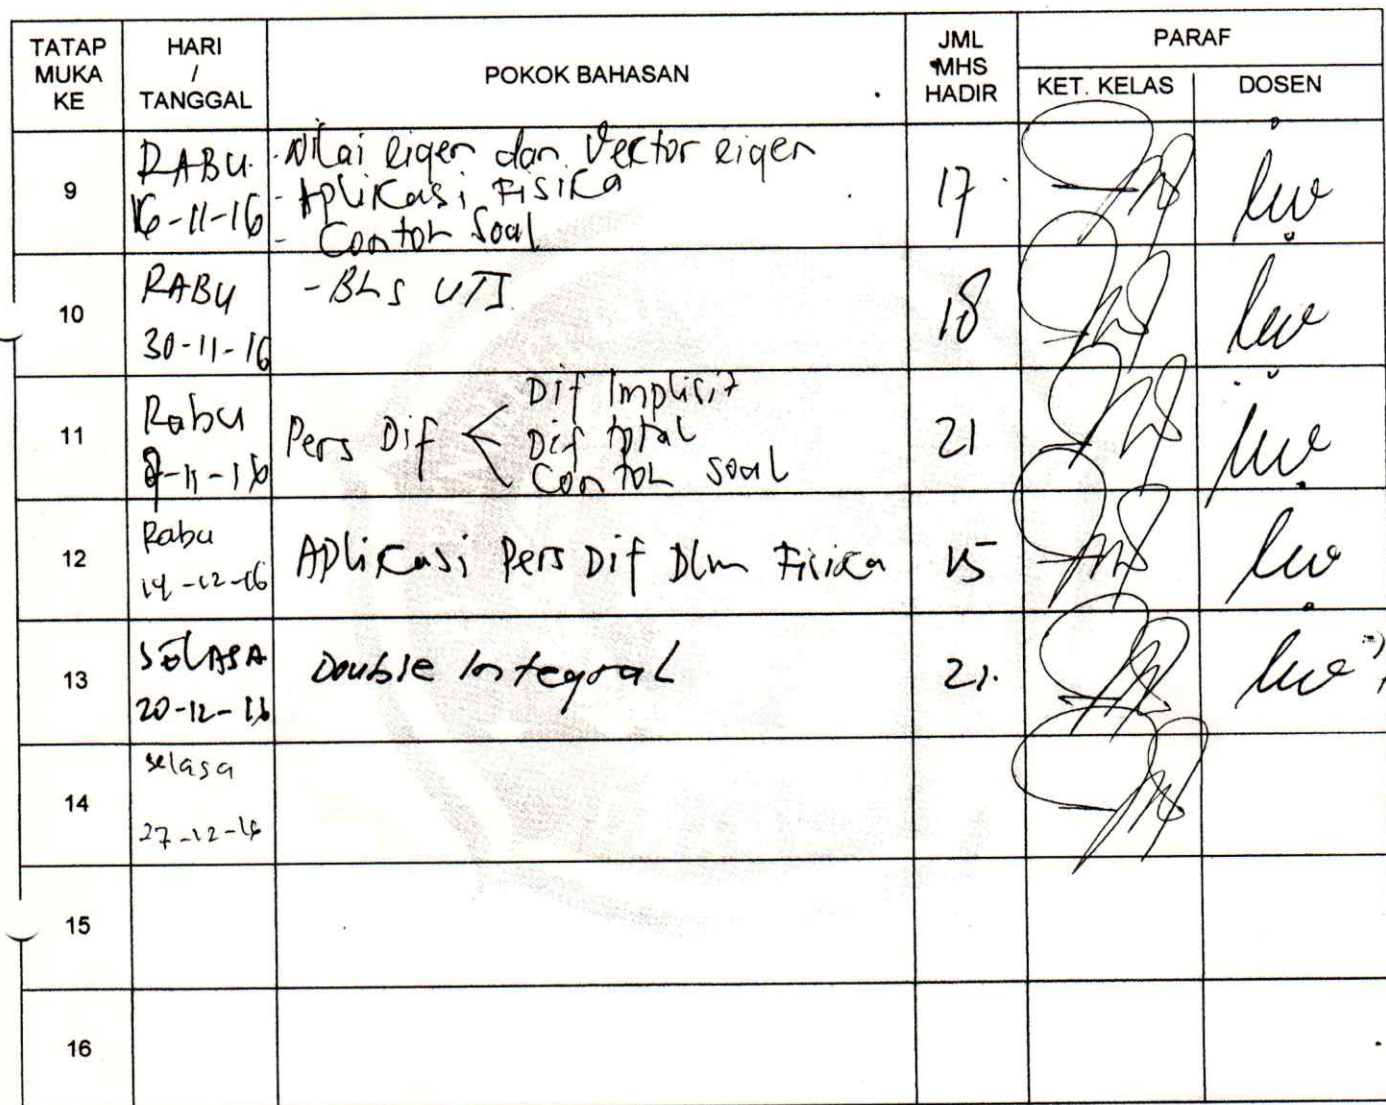 TATAP MUKA KE
HARI / TANGGAL
POKOK BAHASAN
JML MHS HADIR
PARAF
KET. KELAS
DOSEN
9
RABU
16-11-16
- Nilai eigen dan Vector eigen
- Aplikasi Fisika
- Contoh Soal
17
10
RABU
30-11-16
- BLS UTS
18
11
Rabu
Pers Dif <
Dif Implisit
Dif total
Contoh soal
21
12
Rabu
14-12-16
Aplikasi Pers Dif Dlm Fisika
15
13
SELASA
20-12-16
Double Integral
21.
14
selasa
27-12-16
15
16